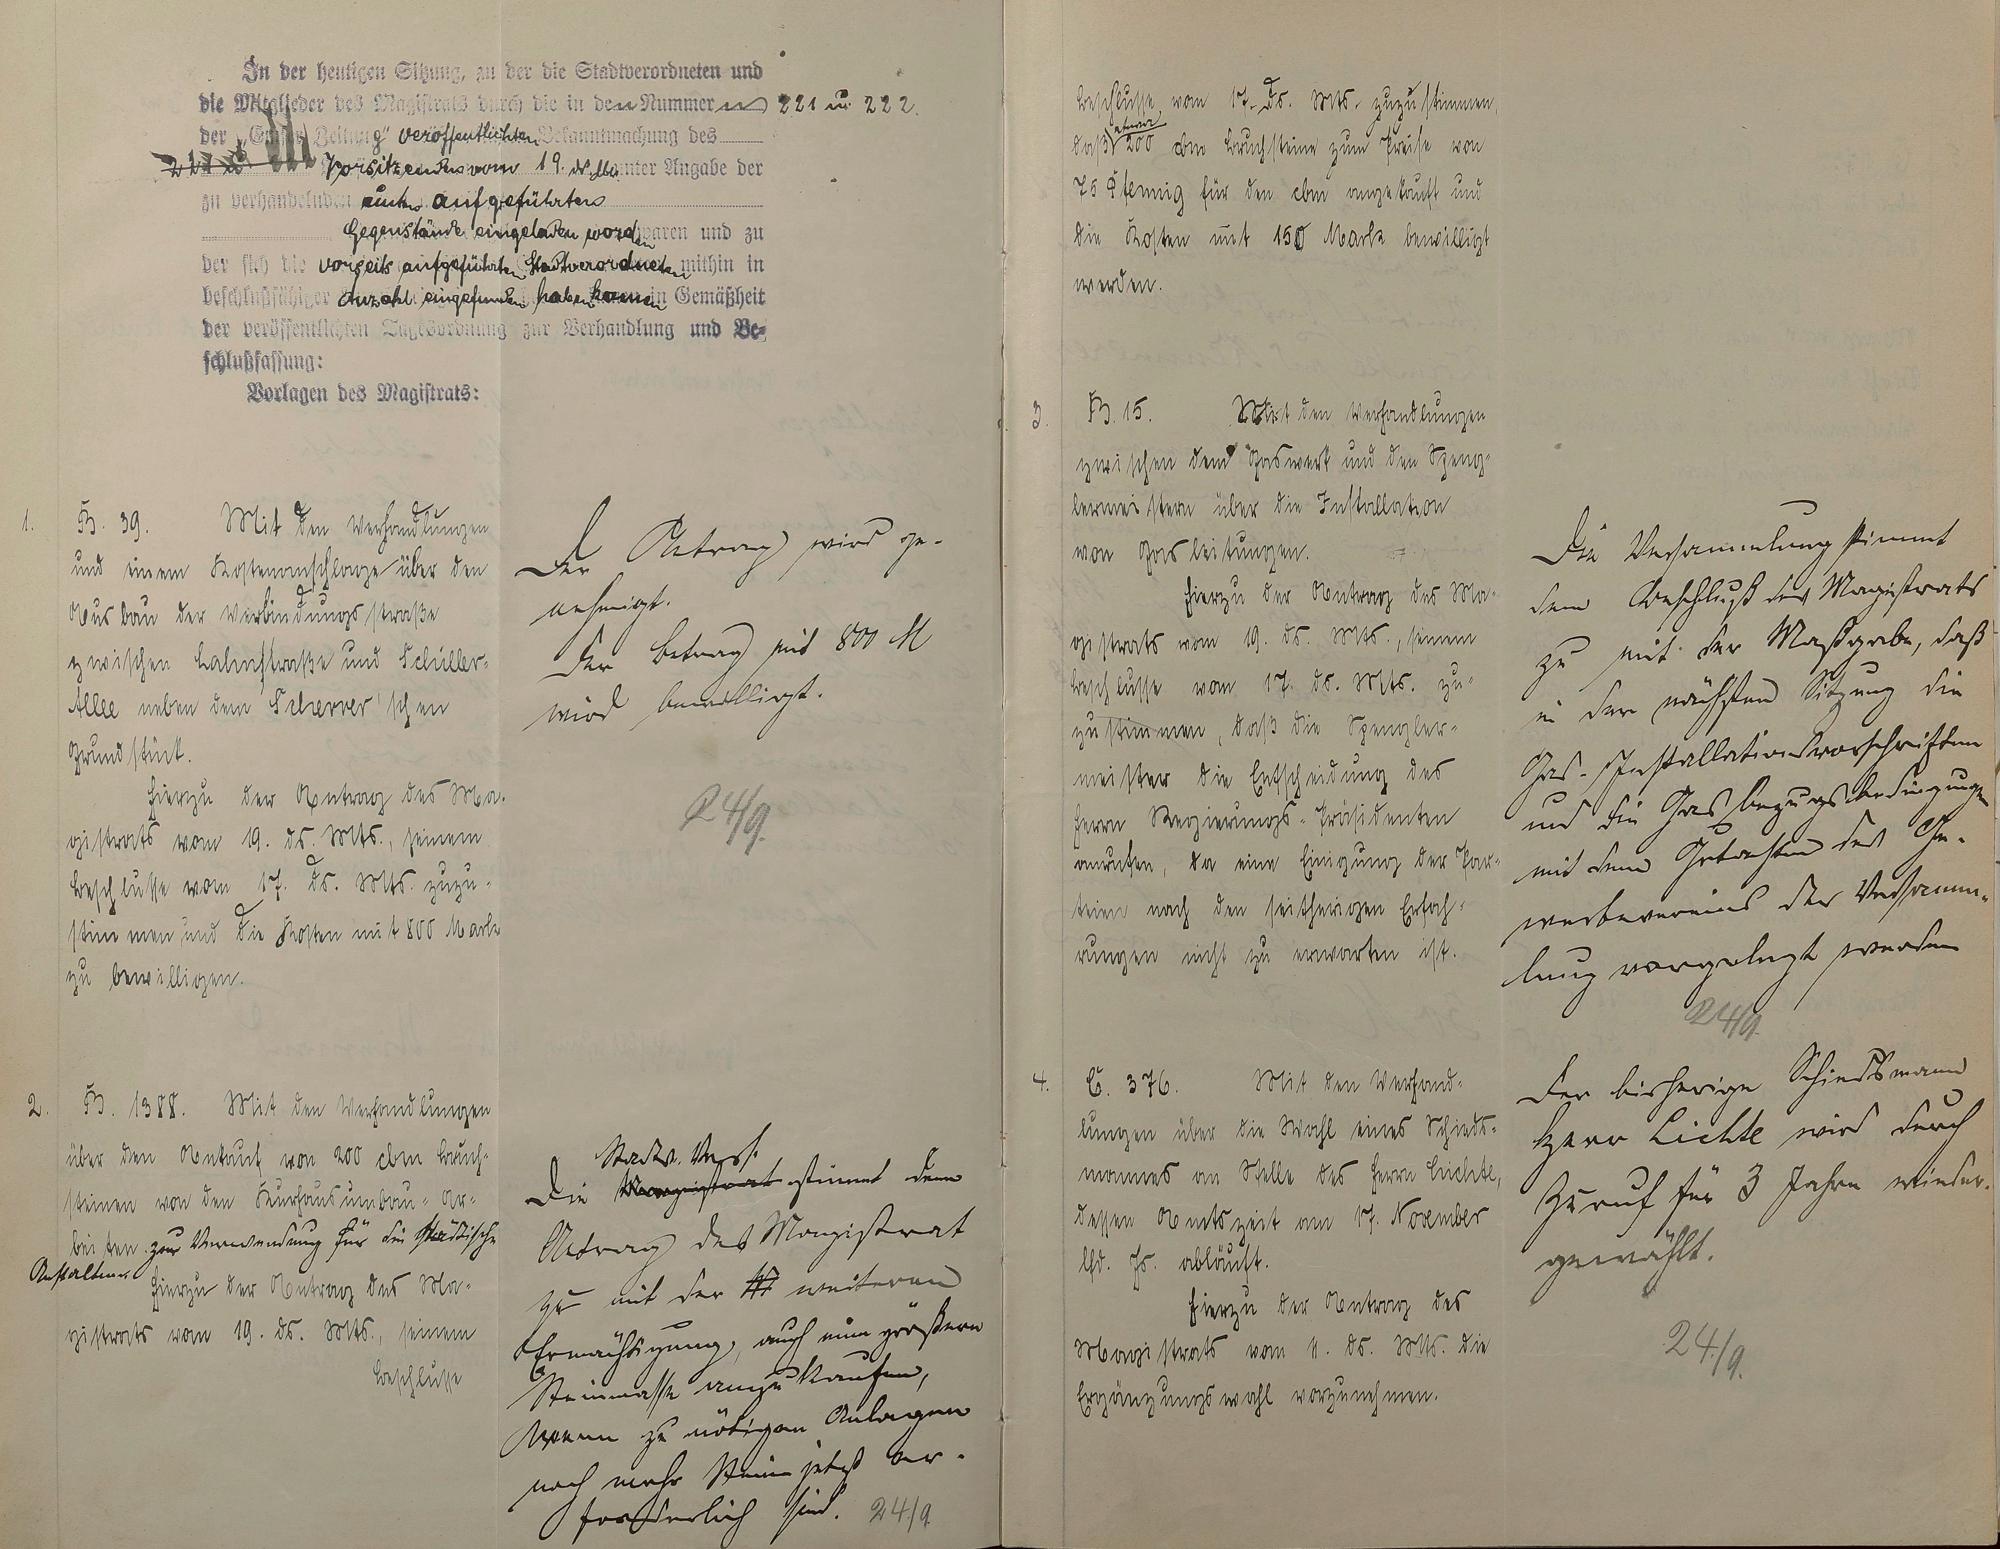 In der heutigen Sitzung, zu der die Stadtverordneten und
die Mitglieder des Magistrats durch die in den Nummern 221 u. 222.
der „Emser Zeitung“ veröffentlichten Bekanntmachung des
Vorsitzenden vom 19. ds. Mts. unter Angabe der
zu verhandelnden aufgeführten
Gegenstände eingeladen worden waren und zu
der sich die vorseits aufgeführten Stadtverordneten mithin in
beschlußfähiger Anzahl eingefunden haben kamen in Gemäßheit
der veröffentlichten Tagesordnung zur Verhandlung und Be-
schlußfassung:
Vorlagen des Magistrats:
1. B. 39. Mit den Verhandlungen
und einem Kostenanschlage über den
Ausbau der Verbindungsstraße
zwischen Lahnstraße und Schüller-
Allee neben dem Scherrer'schen
Grundstück.
Hierzu der Antrag des Ma-
gistrats vom 19. ds. Mts., seinem
Beschlusse vom 17. ds. Mts. zuzu-
stimmen und die Kosten mit 800 Mark
zu bewilligen.
Der Antrag wird ge-
nehmigt.
Der Betrag mit 800 M
wird bewilligt.
24/9.
2. B. 1388. Mit den Verhandlungen
über den Ankauf von 200 cbm Bruch-
steinen von den Kurhausumbau-Ar-
beiten zur Verwendung für die städtische
Anstalten
Hierzu der Antrag des Ma-
gistrats vom 19. ds. Mts., seinem
Beschlusse
Stadtv. Vers.
Die Magistrat stimmt dem
Antrag des Magistrat
zu mit der weiteren
Ermächtigung, auch eine größere
Steinmasse anzukaufen,
wenn zu nötigen Anlagen
noch mehr Steine jetzt er-
forderlich sind. 24/9
Beschlusse vom 17. ds. Mts. zuzustimmen,
etwa
daß 200 cbm Bruchsteine zum Preise von
75 Pfennig für den cbm angekauft und
die Kosten mit 150 Mark bewilligt
werden.
3. B. 15. Mit den Verhandlungen
zwischen dem Gaswerk und den Speng-
lermeistern über die Installation
von Gasleitungen.
Hierzu der Antrag des Ma-
gistrats vom 19. ds. Mts., seinem
Beschlusse vom 17. ds. Mts. zu-
zustimmen, daß die Spengler-
meister die Entscheidung des
Herrn Regierungs-Präsidenten
anrufen, da eine Einigung der Par-
teien nach den seitherigen Erfah-
rungen nicht zu erwarten ist.
Die Versammlung stimmt
dem Beschluß des Magistrats
zu mit der Maßgabe, daß
in der nächsten Sitzung die
Gas-Installationsvorschriften
und die Gasbezugsbedingungen
mit dem Gutachten des Ge-
werbevereins der Versamm-
lung vorgelegt werden
24/9.
4. C. 376. Mit den Verhand-
lungen über die Wahl eines Schieds-
mannes an Stelle des Herrn Lichte,
dessen Amtszeit am 17. November
lfd. Js. abläuft.
Hierzu der Antrag des
Magistrats vom 11. ds. Mts. die
Ergänzungswahl vorzunehmen.
Der bisherige Schiedsmann
Herr Lichte wird durch
Zuruf für 3 Jahre wieder-
gewählt.
24./9.